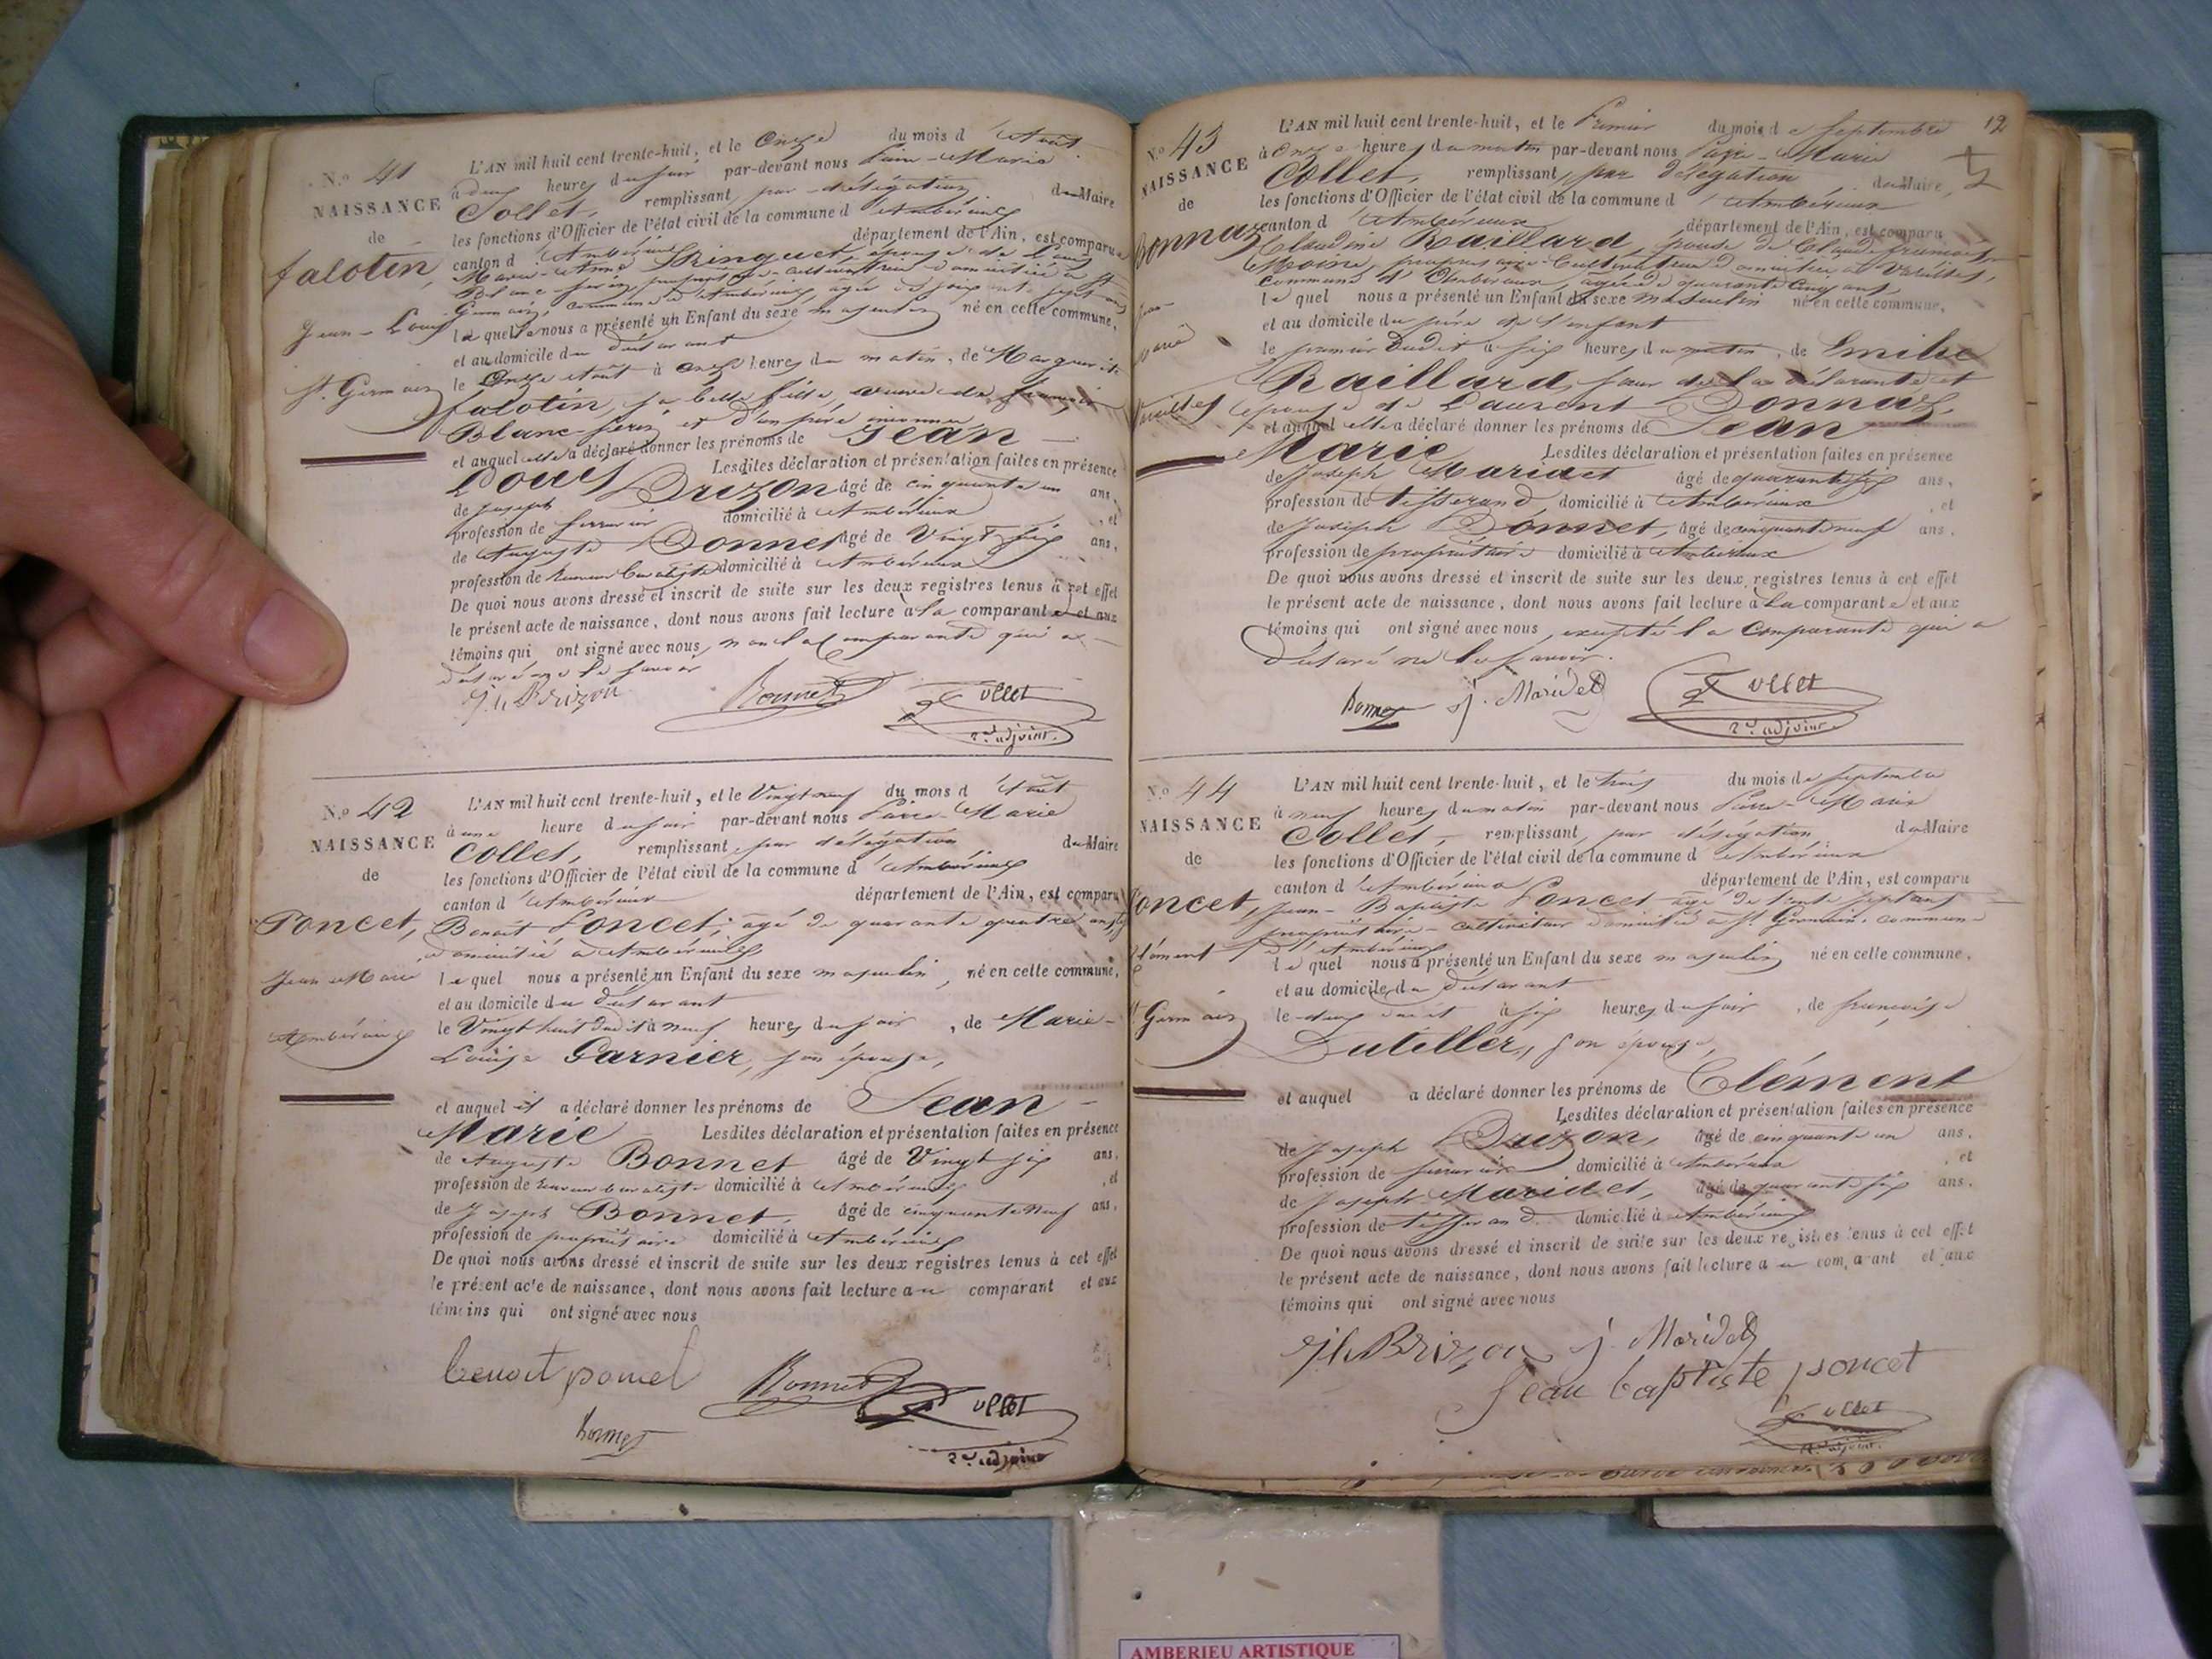 N.º 41
NAISSANCE
de
falotin,
Jean-Louis
St. Germain
L'AN mil huit cent trente-huit, et le Onze du mois d'Août
à deux heures du soir par-devant nous Pierre-Marie
Collet, remplissant par délégation du Maire
les fonctions d'Officier de l'état civil de la commune d'Ambérieux
canton d'Ambérieux département de l'Ain, est comparue
Marie-Anne épouse de Louis
Blanc
Germain, commune d'Ambérieux, âgée de soixante sept ans
laquelle nous a présenté un Enfant du sexe masculin né en cette commune,
et au domicile du déclarant
le Onze Août à onze heures du matin, de Marguerite
falotin, sa belle fille, veuve de françois
Blanc et d'un père inconnu
et auquel elle a déclaré donner les prénoms de Jean
Louis Lesdites déclaration et présentation faites en présence
de Joseph Brizon âgé de cinquante un ans,
profession de serrurier domicilié à Ambérieux, et
de Auguste Bonnet âgé de Vingt six ans,
profession de domicilié à Ambérieux
De quoi nous avons dressé et inscrit de suite sur les deux registres tenus à cet effet
le présent acte de naissance, dont nous avons fait lecture à la comparante et aux
témoins qui ont signé avec nous, non la Comparante qui a
déclaré ne le savoir
Jh Brizon Bonnet Collet
2nd adjoint.
N.º 42
NAISSANCE
de
Poncet,
Jean Marie
Ambérieux
L'AN mil huit cent trente-huit, et le Vingt neuf du mois d'Août
à une heure du soir par-devant nous Pierre-Marie
Collet, remplissant, par délégation du Maire
les fonctions d'Officier de l'état civil de la commune d'Ambérieux
canton d'Ambérieux département de l'Ain, est comparu
Benoit Poncet, âgé de quarante quatre ans,
domicilié à Ambérieux
lequel nous a présenté un Enfant du sexe masculin, né en cette commune,
et au domicile du déclarant
le Vingt huit dudit à neuf heures du soir, de Marie-
Louise Garnier, son épouse,
et auquel il a déclaré donner les prénoms de Jean-
Marie Lesdites déclaration et présentation faites en présence
de Auguste Bonnet âgé de Vingt six ans,
profession de domicilié à Ambérieux, et
de Joseph Bonnet, âgé de cinquante neuf ans,
profession de propriétaire domicilié à Ambérieux
De quoi nous avons dressé et inscrit de suite sur les deux registres tenus à cet effet
le présent acte de naissance, dont nous avons fait lecture au comparant et aux
témoins qui ont signé avec nous
benoit poncet Bonnet Collet
Bonnet 2nd adjoint
12
N.º 43
NAISSANCE
de
Bonnaz
Jean
Marie
Vareilles
L'AN mil huit cent trente-huit, et le Premier du mois de Septembre
à Onze heures du matin par-devant nous Pierre-Marie
Collet, remplissant, par délégation du Maire,
les fonctions d'Officier de l'état civil de la commune d'Ambérieux
canton d'Ambérieux département de l'Ain, est comparu
Claudine Raillard, épouse de Claude françois
Moine, propriétaire-Cultivateur domicilié à Vareilles,
commune d'Ambérieux, âgée de quarante cinq ans,
lequel nous a présenté un Enfant du sexe masculin né en cette commune,
et au domicile du père de l'enfant
le premier Dudit à six heures du matin, de Emilie
Raillard, sœur de la déclarante et
épouse de Laurent Bonnaz,
et auquel elle a déclaré donner les prénoms de Jean
Marie Lesdites déclaration et présentation faites en présence
de Joseph Maridet âgé de quarante six ans,
profession de tisserand domicilié à Ambérieux, et
de Joseph Bonnet, âgé de cinquante neuf ans,
profession de propriétaire domicilié à Ambérieux
De quoi nous avons dressé et inscrit de suite sur les deux registres tenus à cet effet
le présent acte de naissance, dont nous avons fait lecture à la comparante et aux
témoins qui ont signé avec nous, excepté la Comparante qui a
déclaré ne le savoir.
Bonnet j. Maridet Collet
2nd adjoint
N.º 44
NAISSANCE
de
Poncet,
Clément
St Germain
L'AN mil huit cent trente-huit, et le trois du mois de Septembre
à neuf heures du matin par-devant nous Pierre-Marie
Collet, remplissant, par délégation du Maire
les fonctions d'Officier de l'état civil de la commune d'Ambérieux
canton d'Ambérieux département de l'Ain, est comparu
Jean-Baptiste Poncet âgé de trente sept ans
propriétaire-cultivateur domicilié à St Germain, commune
d'Ambérieux
lequel nous a présenté un Enfant du sexe masculin né en cette commune,
et au domicile du déclarant
le deux dudit à six heures du soir, de françoise
Dutiller, son épouse,
et auquel a déclaré donner les prénoms de Clément
Lesdites déclaration et présentation faites en présence
de Joseph Brizon, âgé de cinquante un ans,
profession de serrurier domicilié à Ambérieux, et
de Joseph Maridet, âgé de quarante six ans,
profession de tisserand domicilié à Ambérieux
De quoi nous avons dressé et inscrit de suite sur les deux registres tenus à cet effet
le présent acte de naissance, dont nous avons fait lecture au comparant et aux
témoins qui ont signé avec nous
Jh Brizon j. Maridet
Jean baptiste poncet
Collet
2nd adjoint.
AMBERIEU ARTISTIQUE